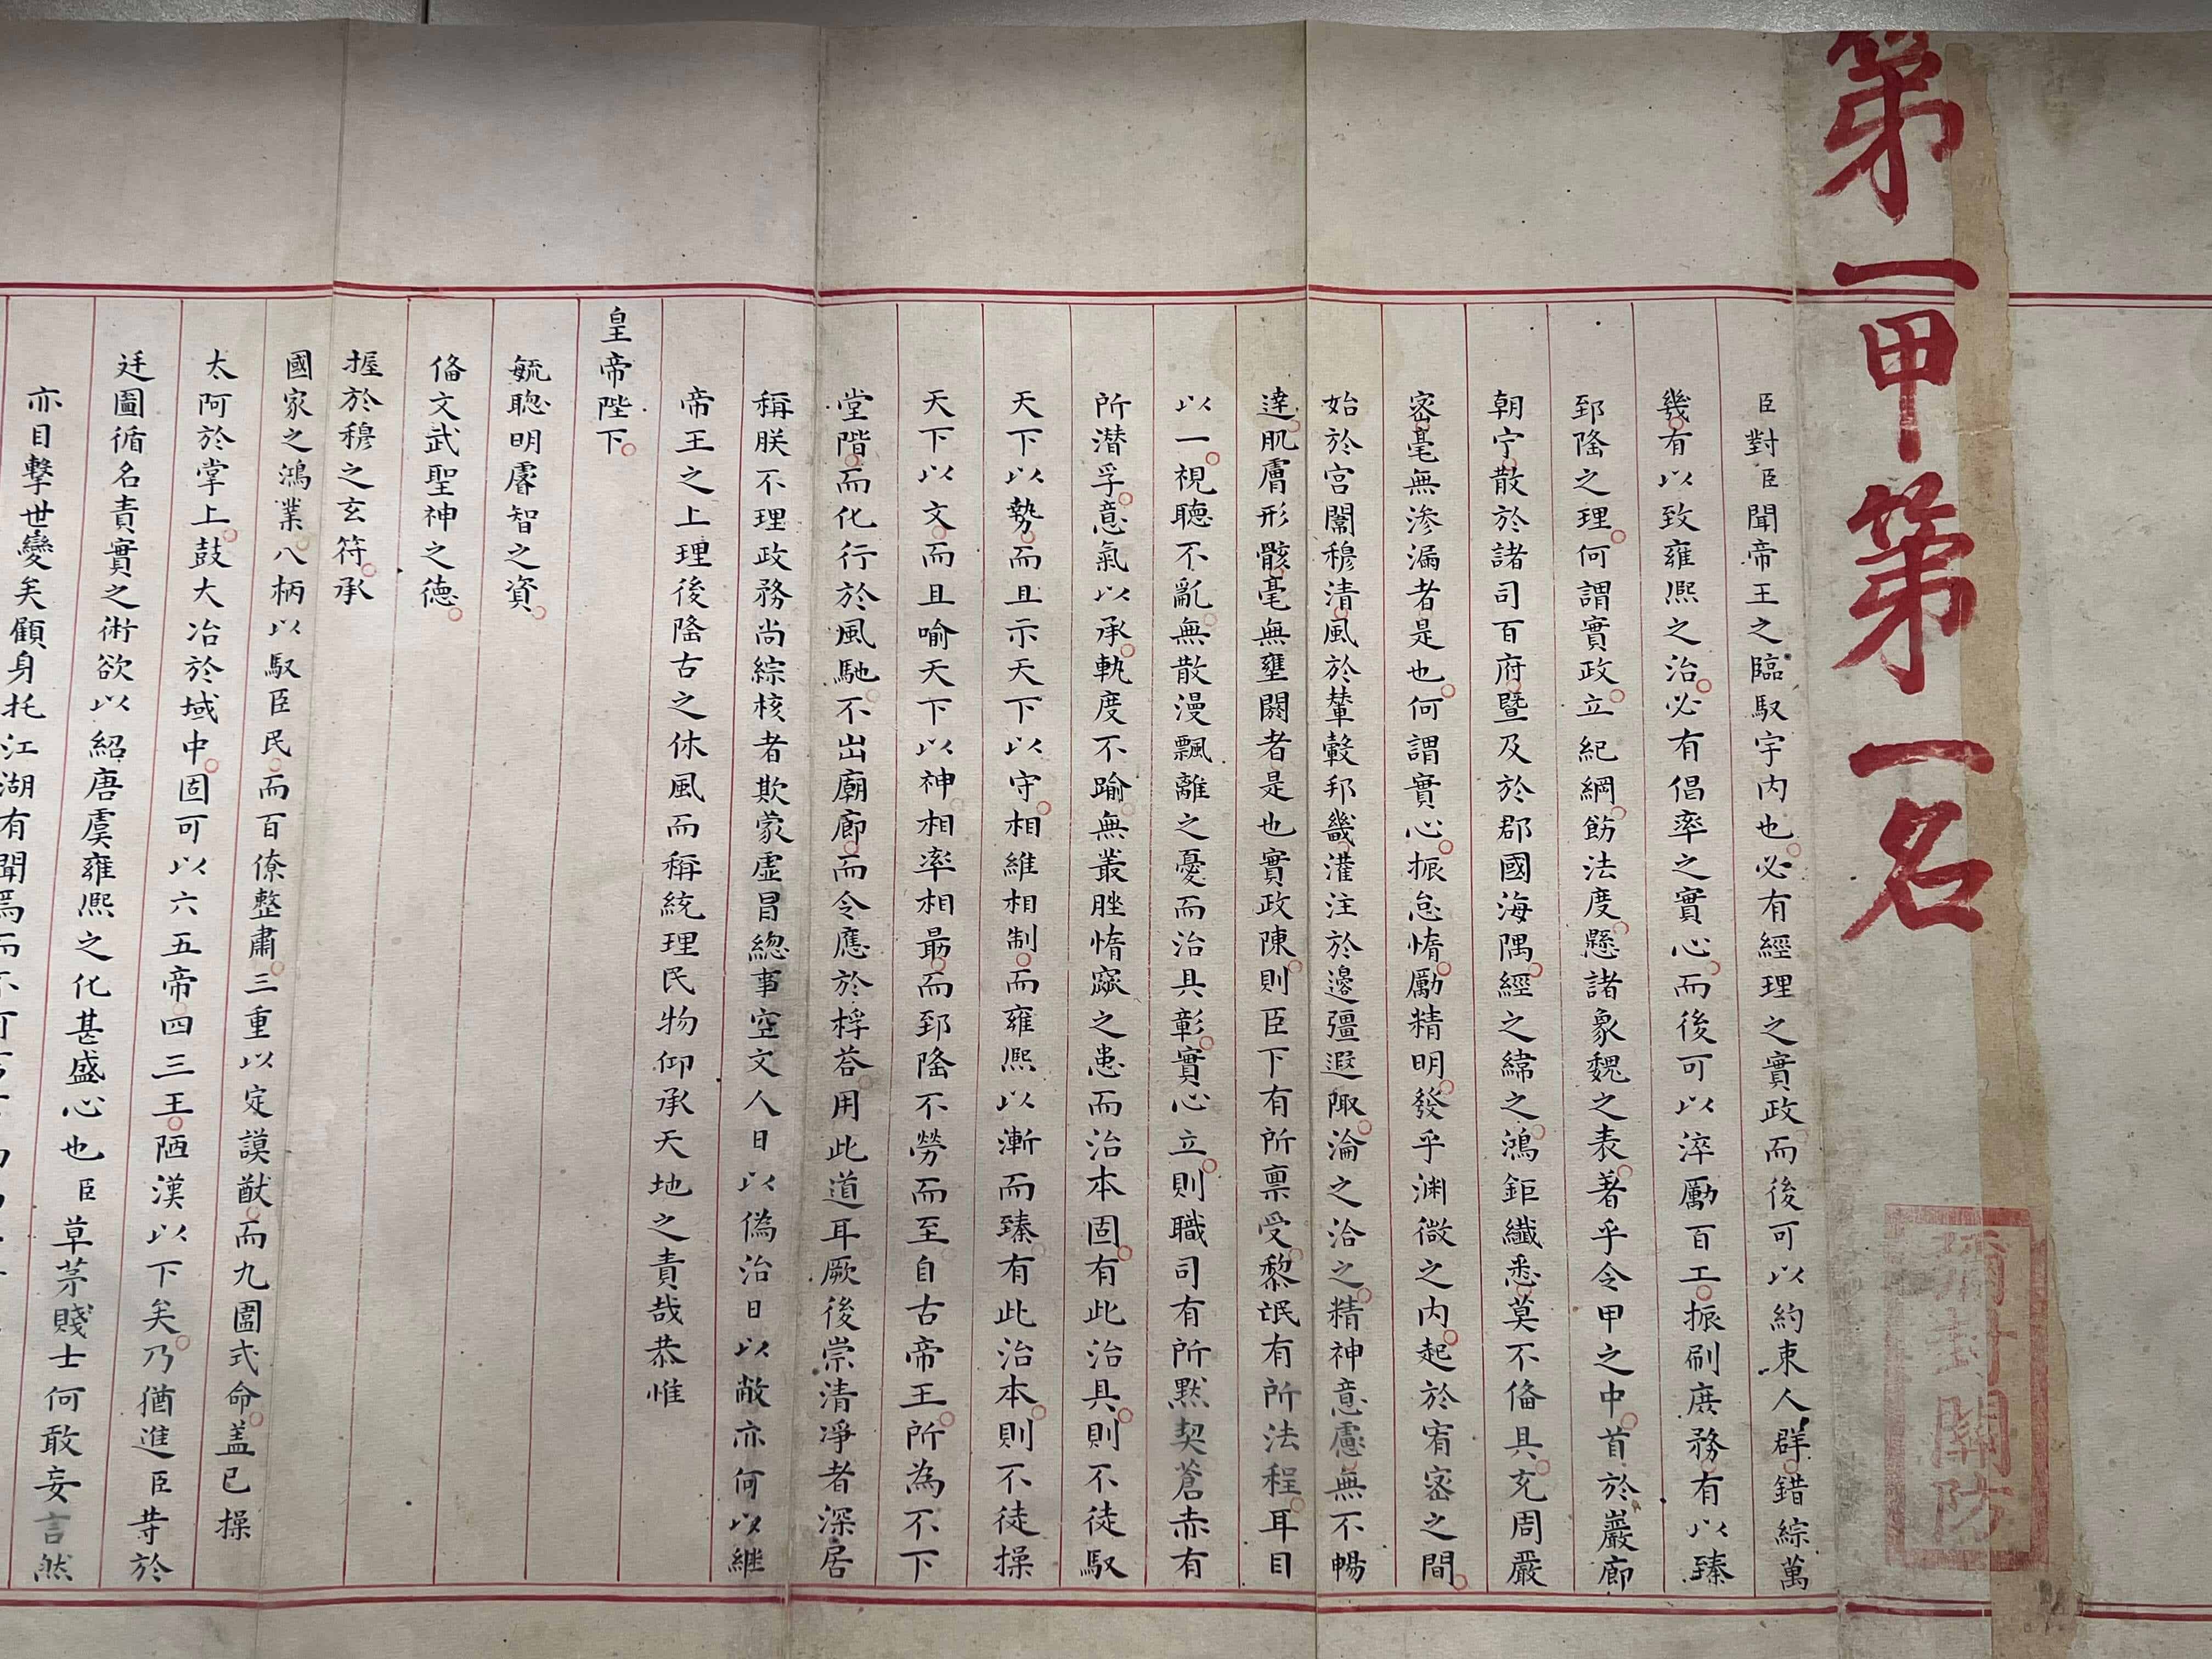 第一甲第一名
彌封關防
臣對臣聞帝王之臨馭宇内也必有經理之實政而後可以約束人群錯綜萬
幾有以致雍熙之治必有倡率之實心而後可以淬勵百工振刷庶務有以臻
郅隆之理何謂實政立紀綱飭法度懸諸象魏之表著乎令甲之中首於巖廊
朝宁散於諸司百府暨及於郡國海隅經之緯之鴻鉅纖悉莫不俻具充周嚴
密毫無滲漏者是也何謂實心振怠惰勵精明發乎渊微之内起於宥密之間
始於宫闈穆清風於輦轂邦畿灌注於邊疆遐陬淪之洽之精神意慮無不暢
達肌膚形骸毫無壅閼者是也實政陳則臣下有所禀受黎氓有所法程耳目
以一視聽不亂無散漫飄離之憂而治具彰實心立則職司有所默契蒼赤有
所潜孚意氣以承軌度不踰無叢脞惰窳之患而治本固有此治具則不徒馭
天下以勢而且示天下以守相維相制而雍熙以漸而臻有此治本則不徒操
天下以文而且喻天下以神相率相勗而郅隆不勞而至自古帝王所為不下
堂階而化行於風馳不出廟廊而令應於桴荅用此道耳厥後崇清淨者深居
稱朕不理政務尚綜核者欺蒙虛冒總事空文人日以偽治日以敝亦何以繼
帝王之上理後隆古之休風而稱統理民物仰承天地之責哉恭惟
皇帝陛下
毓聰明睿智之資
俻文武聖神之德
握於穆之玄符承
國家之鴻業八柄以馭臣民而百僚整肅三重以定謨猷而九圍式命盖已操
太阿於掌上鼓大冶於域中固可以六五帝四三王陋漢以下矣乃猶進臣䒭於
廷圖循名責實之術欲以紹唐虞雍熙之化甚盛心也臣草茅賤士何敢妄言然
亦目擊世變矣顧身托江湖有聞焉而不可